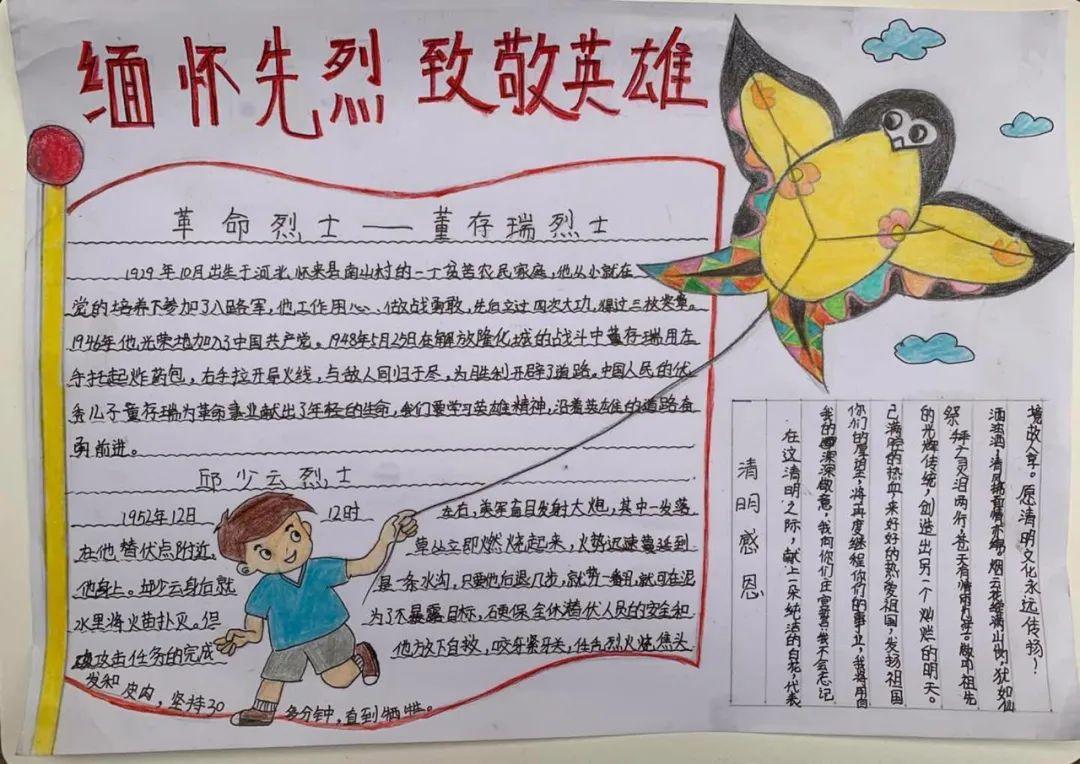 缅怀先烈 致敬英雄
革命烈士——董存瑞烈士
1929年10月出生于河北怀来县南山村的一个贫苦农民家庭,他从小就在
党的培养下参加了八路军,他工作用心、做战勇敢,先后立过四次大功,得过三枚奖章。
1946年他光荣地加入了中国共产党。1948年5月25日在解放隆化城的战斗中董存瑞用左
手托起炸药包,右手拉开导火线,与敌人同归于尽,为胜利开辟了道路。中国人民的优
秀儿子董存瑞为革命事业献出了年轻的生命,我们要学习英雄精神,沿着英雄的道路奋
勇前进。
邱少云烈士
1952年12日 12时 左右,美军盲目发射大炮,其中一发落
在他潜伏点附近。 草丛立即燃烧起来,火势迅速蔓延到
他身上。邱少云身后就 是一条水沟,只要他后退几步,就势一翻,就可在泥
水里将火苗扑灭。但 为了不暴露目标,确保全体潜伏人员的安全和
攻击任务的完成 他放下自救,咬牙紧牙关,任凭烈火烧焦头
发和皮肉,坚持30 多分钟,直到牺牲。
清明感恩
在这清明之际,献上一朵纯洁的白花,代表
我的深深敬意,我向你们庄宣誓我不会忘记
你们的厚望,将再度继程你们的事业,我将用自
己满腔的热血来好好的热爱祖国,发扬祖国
的光辉传统,创造出另一个灿烂的明天。
祭 拜之灵泪两行,苍天有情雨九字。敬邀祖先
洒浊酒,清风拂面情亦绵。烟云花绕满山坳,犹如仙
境故人享。愿清明文化永远传扬!